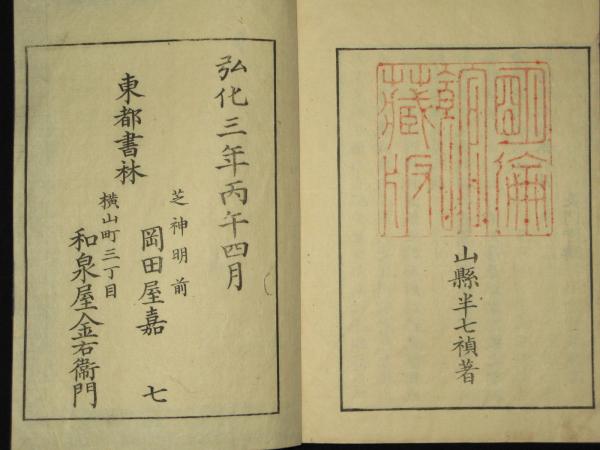 明倫
館
藏版
山縣半七禎著
弘化三年丙午四月
芝神明前
岡田屋嘉七
東都書林
横山町三丁目
和泉屋金右衞門